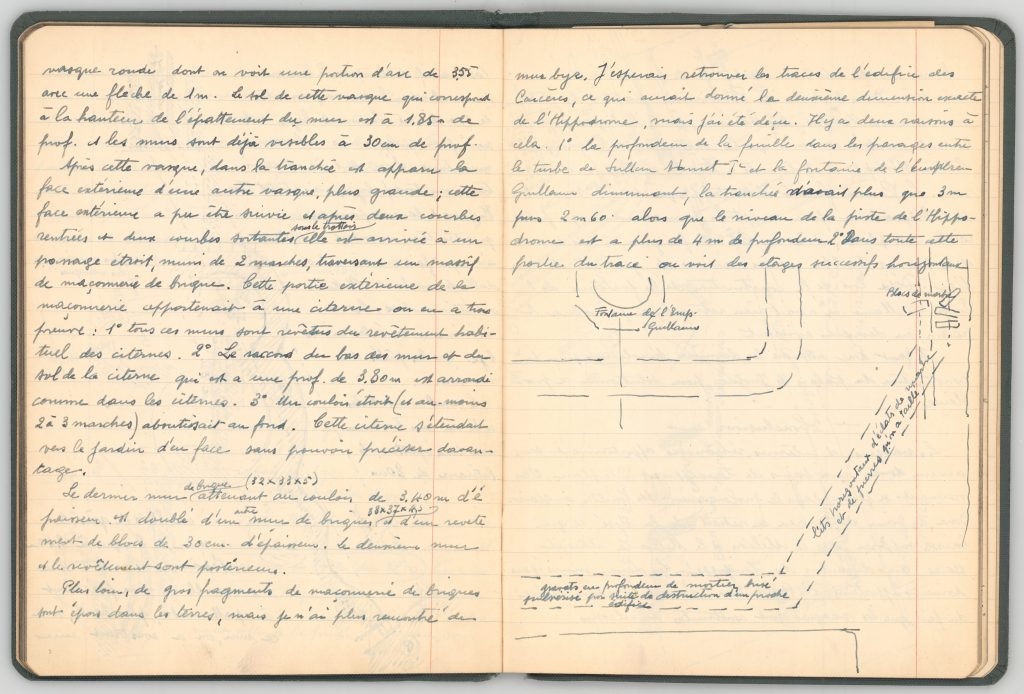 vasque ronde dont on voit une portion d'arc de 3,55
avec une flèche de 1m. Le sol de cette vasque qui correspond
à la hauteur de l'épattement du mur est à 1.85m de
prof. et les murs sont déjà visibles à 30cm de prof.
Après cette vasque, dans la tranchée est apparu la
face extérieure d'une autre vasque, plus grande ; cette
face extérieure a pu être suivie et après deux courbes
rentrées et deux courbes sortantes sous le trottoir elle est arrivée à un
passage étroit, muni de 2 marches, traversant un massif
de maçonnerie de brique. Cette partie extérieure de la
maçonnerie appartenait à une citerne on en a trois
preuves : 1° tous ces murs sont revêtus du revêtement habi-
tuel des citernes. 2° Le raccord du bas des mur et du
sol de la citerne qui est a une prof. de 3,80m est arrondi
comme dans les citernes. 3° Un couloir étroit (et au moins
2 à 3 marches) aboutissait au fond. Cette citerne s'étendait
vers le jardin d'en face sans pouvoir préciser davan-
tage.
Le dernier mur de briques (32x33x5) attenant au couloir de 3,40m d'é
paisseur est doublé d'un autre mur de briques et d'un revête
ment de blocs de 30cm d'épaisseur. Le deuxième mur
et le revêtement sont postérieurs.
Plus loin, de gros fragments de maçonnerie de briques
sont épars dans les terres, mais je n'ai plus rencontré de
mur byz. J'espérais retrouver les traces de l'édifice des
Carcères, ce qui aurait donné la deuxième dimension exacte
de l'Hippodrome, mais j'ai été déçu. Il y a deux raisons à
cela. 1° la profondeur de la fouille dans les parages entre
le turbe de Sultan Ahmet I° et la fontaine de l'Empereur
Guillaume diminuant, la tranchée n'avait plus que 3m
puis 2m60 alors que le niveau de la piste de l'Hippo-
drome est a plus de 4m de profondeur 2° Dans toute cette
partie du tracé on voit des étages successifs horizontaux
Blocs de marbre
Fontaine de l'Emp.
Guillaume
lits horizontaux d'éclats de marbre
et de pierres qu'on a taillé
gravats en profondeur de mortier brisé
pulvérisé par suite de destruction d'un proche
édifice